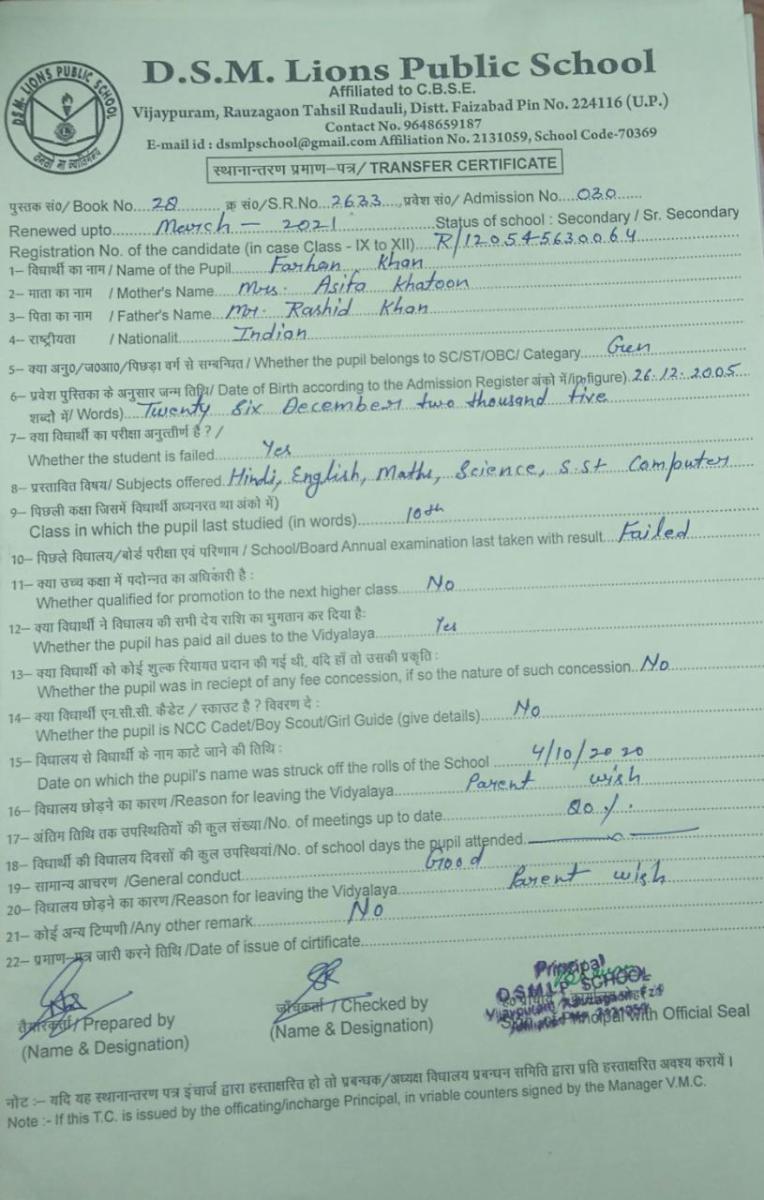 D.S.M. LIONS PUBLIC SCHOOL
D.S.M. Lions Public School
Affiliated to C.B.S.E.
Vijaypuram, Rauzagaon Tahsil Rudauli, Distt. Faizabad Pin No. 224116 (U.P.)
Contact No. 9648659187
E-mail id : dsmlpschool@gmail.com Affiliation No. 2131059, School Code-70369
स्थानान्तरण प्रमाण-पत्र/ TRANSFER CERTIFICATE
पुस्तक सं०/ Book No. 28 क्र सं०/S.R.No. 2633 प्रवेश सं०/ Admission No. 030
Renewed upto March - 2021 Status of school : Secondary / Sr. Secondary
Registration No. of the candidate (in case Class - IX to XII) R/120545630064
1- विद्यार्थी का नाम / Name of the Pupil Farhan Khan
2- माता का नाम / Mother's Name Mrs. Asifa Khatoon
3- पिता का नाम / Father's Name Mr. Rashid Khan
4- राष्ट्रीयता / Nationalit Indian
5- क्या अनु०/ज०आ०/पिछड़ा वर्ग से सम्बन्धित / Whether the pupil belongs to SC/ST/OBC/ Categary Gen
6- प्रवेश पुस्तिका के अनुसार जन्म तिथि/ Date of Birth according to the Admission Register अंको में/in figure) 26.12.2005
शब्दो में/ Words) Twenty Six December two thousand five
7- क्या विद्यार्थी का परीक्षा अनुत्तीर्ण है ? /
Whether the student is failed Yes
8- प्रस्तावित विषय/ Subjects offered Hindi, English, Maths, Science, S.St Computer
9- पिछली कक्षा जिसमें विद्यार्थी अध्यनरत था अंको में)
Class in which the pupil last studied (in words) 10th
10- पिछले विद्यालय/बोर्ड परीक्षा एवं परिणाम / School/Board Annual examination last taken with result Failed
11- क्या उच्च कक्षा में पदोन्नत का अधिकारी है :
Whether qualified for promotion to the next higher class No
12- क्या विद्यार्थी ने विद्यालय की सभी देय राशि का भुगतान कर दिया है:
Whether the pupil has paid all dues to the Vidyalaya Yes
13- क्या विद्यार्थी को कोई शुल्क रियायत प्रदान की गई थी, यदि हाँ तो उसकी प्रकृति :
Whether the pupil was in reciept of any fee concession, if so the nature of such concession No
14- क्या विद्यार्थी एन.सी.सी. कैडेट / स्काउट है ? विवरण दे :
Whether the pupil is NCC Cadet/Boy Scout/Girl Guide (give details) No
15- विद्यालय से विद्यार्थी के नाम काटे जाने की तिथि :
Date on which the pupil's name was struck off the rolls of the School 4/10/2020
16- विद्यालय छोड़ने का कारण /Reason for leaving the Vidyalaya Parent wish
17- अंतिम तिथि तक उपस्थितियों की कुल संख्या/No. of meetings up to date 80 %.
18- विद्यार्थी की विद्यालय दिवसों की कुल उपस्थियां/No. of school days the pupil attended
19- सामान्य आचरण /General conduct Good
20- विद्यालय छोड़ने का कारण/Reason for leaving the Vidyalaya Parent wish
21- कोई अन्य टिप्पणी/Any other remark No
22- प्रमाण-पत्र जारी करने तिथि /Date of issue of cirtificate
Principal
D.S.M.L.P. SCHOOL
Vijaypuram, Rauzagaon
2131059
तैयारकर्ता / Prepared by
(Name & Designation)
जाँचकर्ता / Checked by
(Name & Designation)
Principal with Official Seal
नोट :- यदि यह स्थानान्तरण पत्र इंचार्ज द्वारा हस्ताक्षरित हो तो प्रबन्धक/अध्यक्ष विद्यालय प्रबन्धन समिति द्वारा प्रति हस्ताक्षरित अवश्य करायें ।
Note :- If this T.C. is issued by the officating/incharge Principal, in vriable counters signed by the Manager V.M.C.